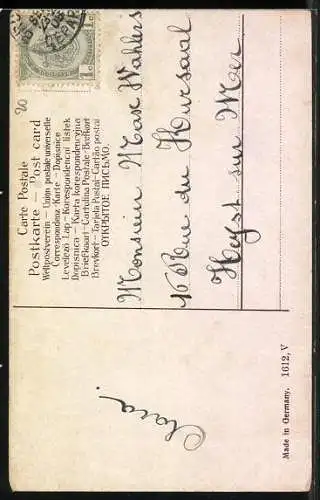 Carte Postale
Postkarte — Post card
Weltpostverein — Union postale universelle
Correspondenz-Karte — Dopisnice
Levelezö Lap — Korespondencni listek
Dopisnica — Karta korespondencyjna
Briefkaart — Cartolina Postale — Brefkort
Brevkort — Tarjeta Postal — Cartão postal
ОТКРЫТОЕ ПИСЬМО.
1c 1c
20
Monsieur Max Wahlers
16 Rue du Kursaal
Heyst sur Mer
Clara.
Made in Germany. 1612, V